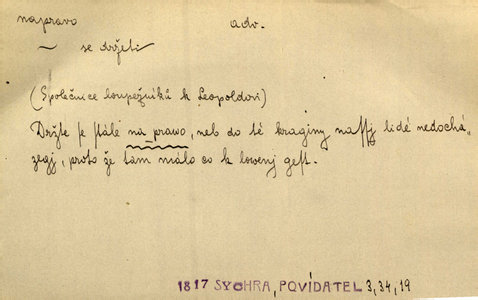 napravo adv.
~ se držeti
(Společnice loupežníků k Leopoldovi)
Držte se stále na prawo, neb do té kraginy nassj lidé nedochá„
zegj, proto že tam málo co k lowenj gest.
1817 SYCHRA, POVÍDATEL 3,34,19